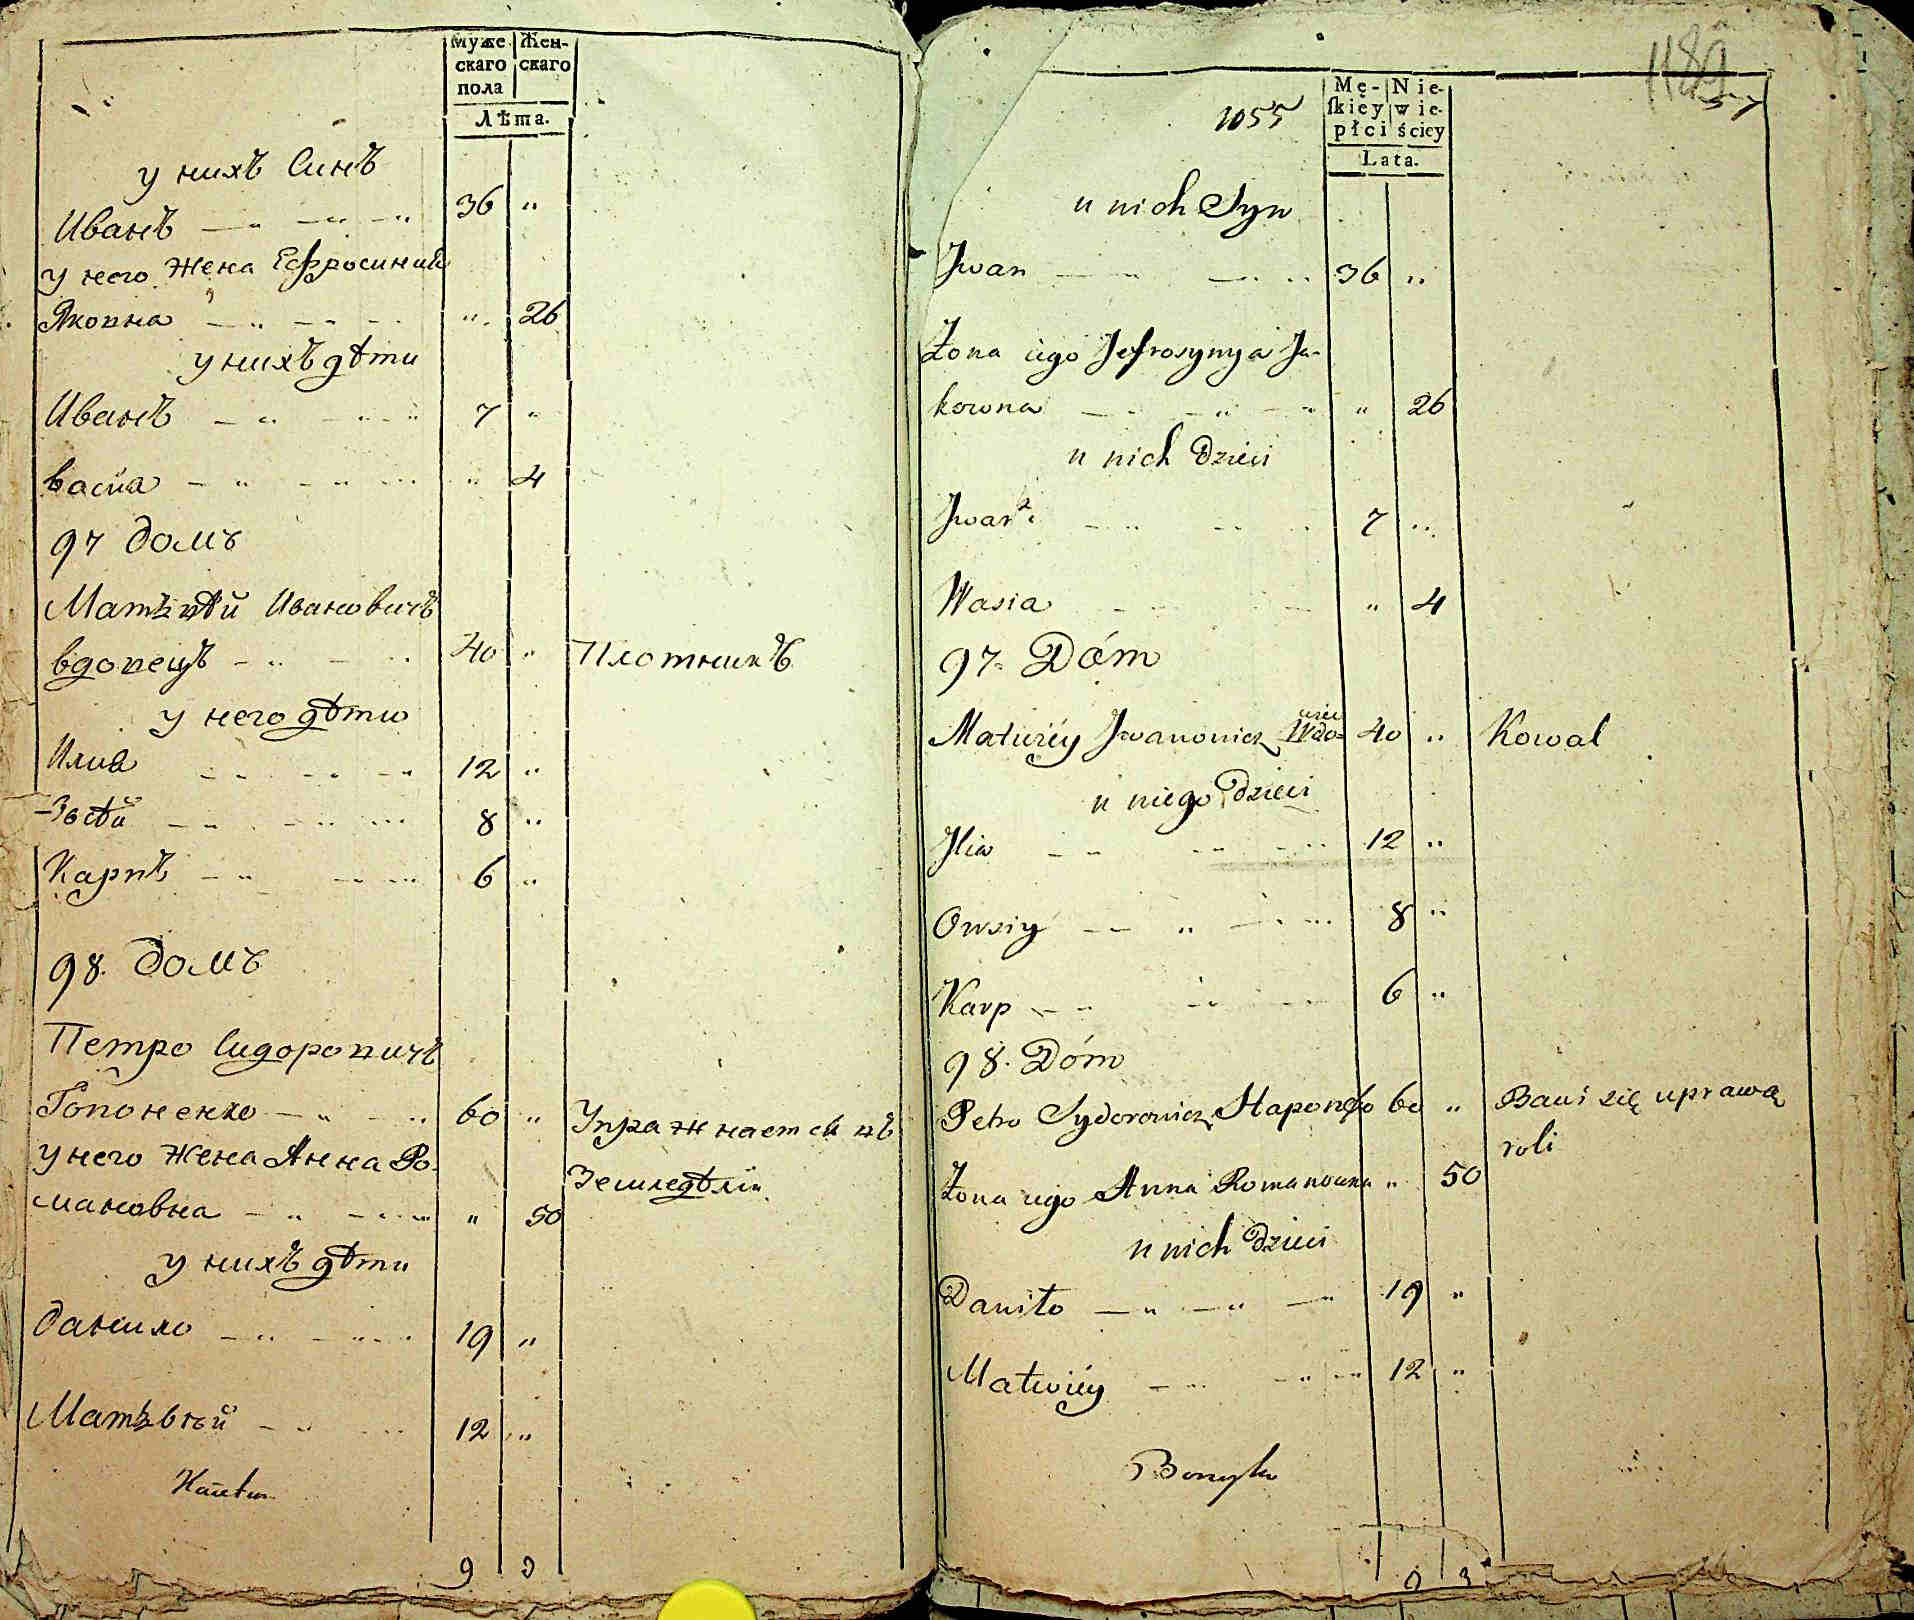 Муже Жен-
скаго скаго
пола
Лѣта.
у нихъ Синъ
Иванъ 36 "
у него Жена Ефросиния
Яковна " 26
у нихъ дѣти
Иванъ 7 "
васия " 4
97 домъ
Матвѣй Ивановичъ
вдовецъ 40 " Плотникъ
у него дѣти
Илия 12 "
8 "
Карпъ 6 "
98. домъ
Петро Сидоровичъ
Гопоненко 60 " Упражнается въ
у него Жена Анна Ро- Земледѣлiи
мановна " 50
у нихъ дѣти
данило 19 "
Матвѣй 12 "
9
1189
57
1055
Mę- Nie-
ſkiey wie-
płci ściey
Lata.
u nich Syn
Jwan 36 "
Żona iego Jefrosynya Ja-
kowna " 26
u nich Dzieci
Jwan 7 "
Wasia " 4
97. Dóm
Matwiéy Jwanowicz Wdo= 40 " Kowal
wiec
u niego Dzieci
Jlia 12 "
Owsiy 8 "
Karp 6 "
98. Dóm
Petro Sydorowicz Haponenko 60 " Bawi się uprawą
roli
Żona iego Anna Romanowna " 50
u nich Dzieci
Daniło 19 "
Matwiéy 12 "
9 3